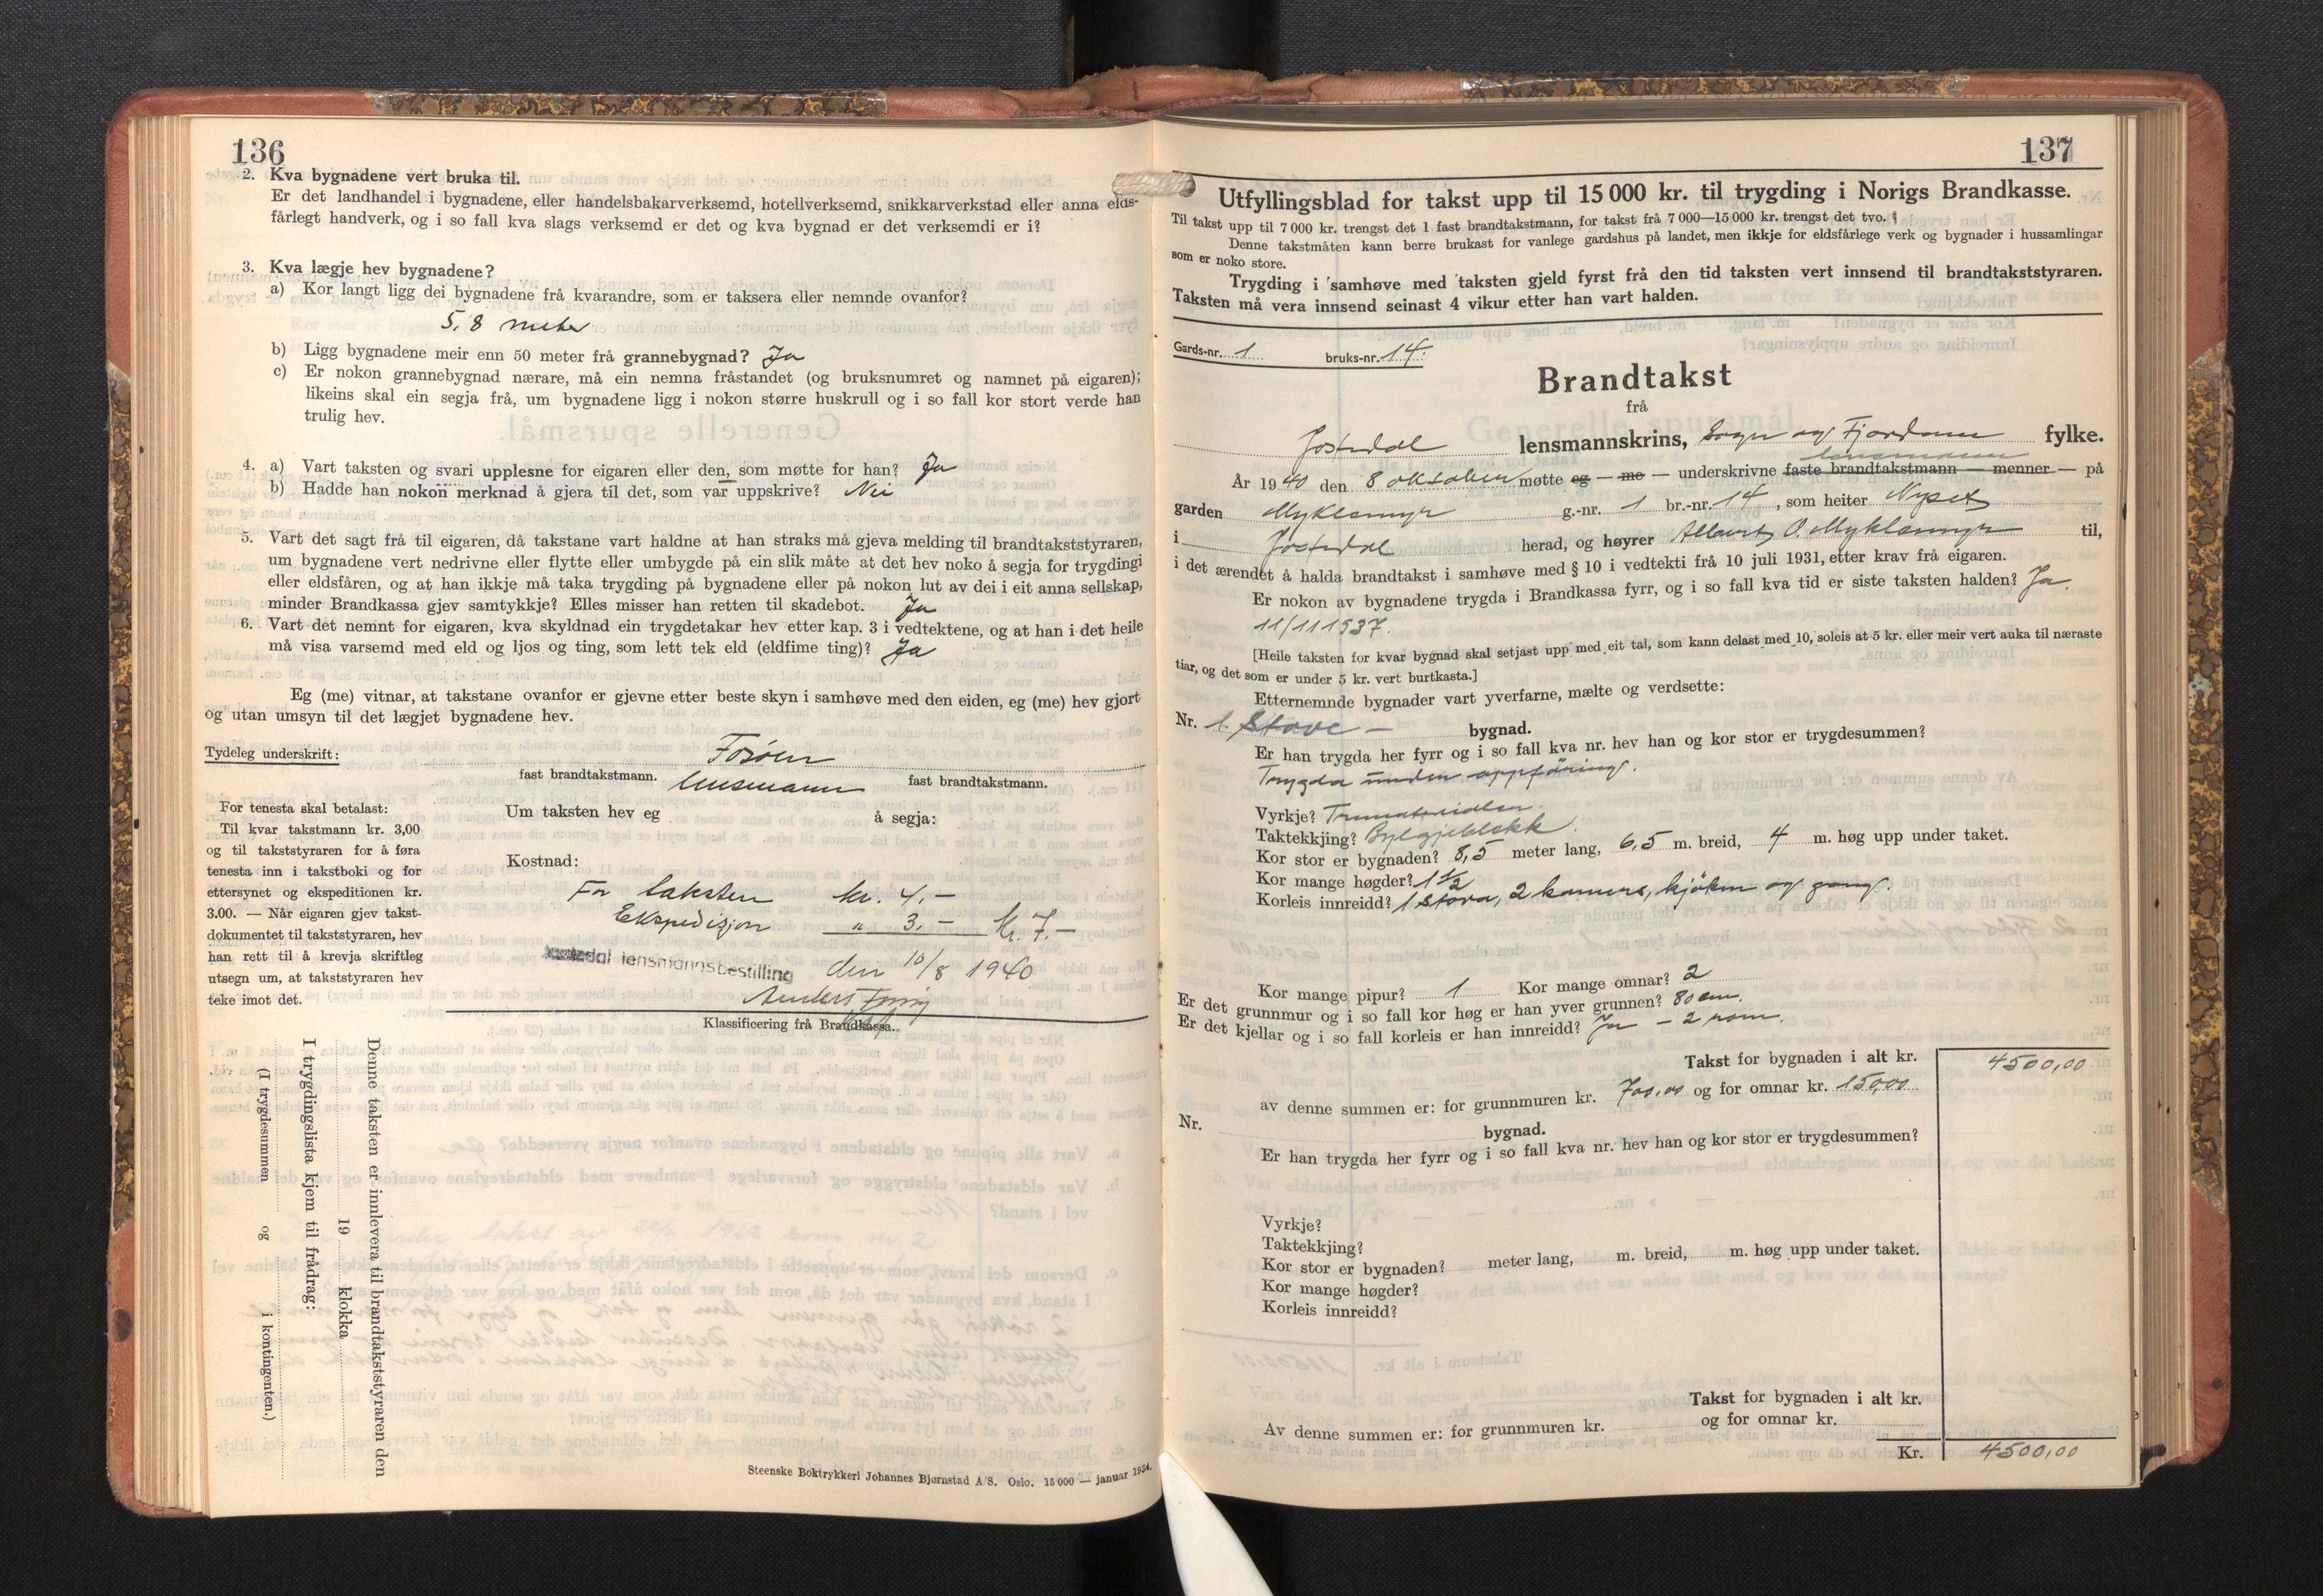 136
2. Kva bygnadene vert bruka til.
Er det landhandel i bygnadene, eller handelsbakarverksemd, hotellverksemd, snikkarverkstad eller anna elds-
fårlegt handverk, og i so fall kva slags verksemd er det og kva bygnad er det verksemdi er i?
3. Kva lægje hev bygnadene?
a) Kor langt ligg dei bygnadene frå kvarandre, som er taksera eller nemnde ovanfor?
5,8 meter
b) Ligg bygnadene meir enn 50 meter frå grannebygnad? Ja
c) Er nokon grannebygnad nærare, må ein nemna fråstandet (og bruksnumret og namnet på eigaren);
likeins skal ein segja frå, um bygnadene ligg i nokon større huskrull og i so fall kor stort verde han
trulig hev.
4. a) Vart taksten og svari upplesne for eigaren eller den, som møtte for han? Ja
b) Hadde han nokon merknad å gjera til det, som var uppskrive? Nei
5. Vart det sagt frå til eigaren, då takstane vart haldne at han straks må gjeva melding til brandtakststyraren,
um bygnadene vert nedrivne eller flytte eller umbygde på ein slik måte at det hev noko å segja for trygdingi
eller eldsfåren, og at han ikkje må taka trygding på bygnadene eller på nokon lut av dei i eit anna sellskap,
minder Brandkassa gjev samtykkje? Elles misser han retten til skadebot. Ja
6. Vart det nemnt for eigaren, kva skyldnad ein trygdetakar hev etter kap. 3 i vedtektene, og at han i det heile
må visa varsemd med eld og ljos og ting, som lett tek eld (eldfime ting)? Ja
Eg (me) vitnar, at takstane ovanfor er gjevne etter beste skyn i samhøve med den eiden, eg (me) hev gjort
og utan umsyn til det lægjet bygnadene hev.
Tydeleg underskrift:
fast brandtakstmann. lensmann fast brandtakstmann.
For tenesta skal betalast:
Til kvar takstmann kr. 3,00
og til takststyraren for å føra
tenesta inn i takstboki og for
ettersynet og ekspeditionen kr.
3.00. — Når eigaren gjev takst-
dokumentet til takststyraren, hev
han rett til å krevja skriftleg
utsegn um, at takststyraren hev
teke imot det.
Um taksten hev eg å segja:
Kostnad:
For taksten kr. 4.-
Ekspedisjon " 3.- Kr. 7.-
Jostedal lensmannsbestilling den 10/8 1940
Klassificering frå Brandkassa.
Denne taksten er innlevera til brandtakststyraren den
19 klokka
I trygdingslista kjem til frådrag:
(I trygdesummen og i kontingenten.)
Steenske Boktrykkeri Johannes Bjørnstad A/S. Oslo. 15 000 — januar 1934.
137
Utfyllingsblad for takst upp til 15 000 kr. til trygding i Norigs Brandkasse.
Til takst upp til 7 000 kr. trengst det 1 fast brandtakstmann, for takst frå 7 000—15 000 kr. trengst det tvo.
Denne takstmåten kann berre brukast for vanlege gardshus på landet, men ikkje for eldsfårlege verk og bygnader i hussamlingar
som er noko store.
Trygding i samhøve med taksten gjeld fyrst frå den tid taksten vert innsend til brandtakststyraren.
Taksten må vera innsend seinast 4 vikur etter han vart halden.
Gards-nr. 1 bruks-nr. 14.
Brandtakst
frå
Jostedal lensmannskrins, Sogn og Fjordane fylke.
lensmann
År 1940 den 8 oktober møtte eg — me — underskrivne faste brandtakstmann — menner — på
garden Myklemyr g.-nr. 1 br.-nr. 14, som heiter Nyset
i Jostedal herad, og høyrer Albert O. Myklemyr til,
i det ærendet å halda brandtakst i samhøve med § 10 i vedtekti frå 10 juli 1931, etter krav frå eigaren.
Er nokon av bygnadene trygda i Brandkassa fyrr, og i so fall kva tid er siste taksten halden? Ja.
11/11 1937.
[Heile taksten for kvar bygnad skal setjast upp med eit tal, som kann delast med 10, soleis at 5 kr. eller meir vert auka til næraste
tiar, og det som er under 5 kr. vert burtkasta.]
Etternemnde bygnader vart yverfarne, mælte og verdsette:
Nr. 1. Stove - bygnad.
Er han trygda her fyrr og i so fall kva nr. hev han og kor stor er trygdesummen?
Trygda under uppföring.
Vyrkje? Trematerialer.
Taktekkjing? Bylgjeblekk.
Kor stor er bygnaden? 8,5 meter lang, 6,5 m. breid, 4 m. høg upp under taket.
Kor mange høgder? 1 1/2
Korleis innreidd? 1 stova, 2 kamers, kjöken og gang.
Kor mange pipur? 1 Kor mange omnar? 2
Er det grunnmur og i so fall kor høg er han yver grunnen? 80 cm.
Er det kjellar og i so fall korleis er han innreidd? Ja - 2 rom.
Takst for bygnaden i alt kr. 4500,00
av denne summen er: for grunnmuren kr. 700,00 og for omnar kr. 150,00
Nr. bygnad.
Er han trygda her fyrr og i so fall kva nr. hev han og kor stor er trygdesummen?
Vyrkje?
Taktekkjing?
Kor stor er bygnaden? meter lang, m. breid, m. høg upp under taket.
Kor mange høgder?
Korleis innreidd?
Takst for bygnaden i alt kr.
Av denne summen er: for grunnmuren kr. og for omnar kr.
Kr. 4500,00